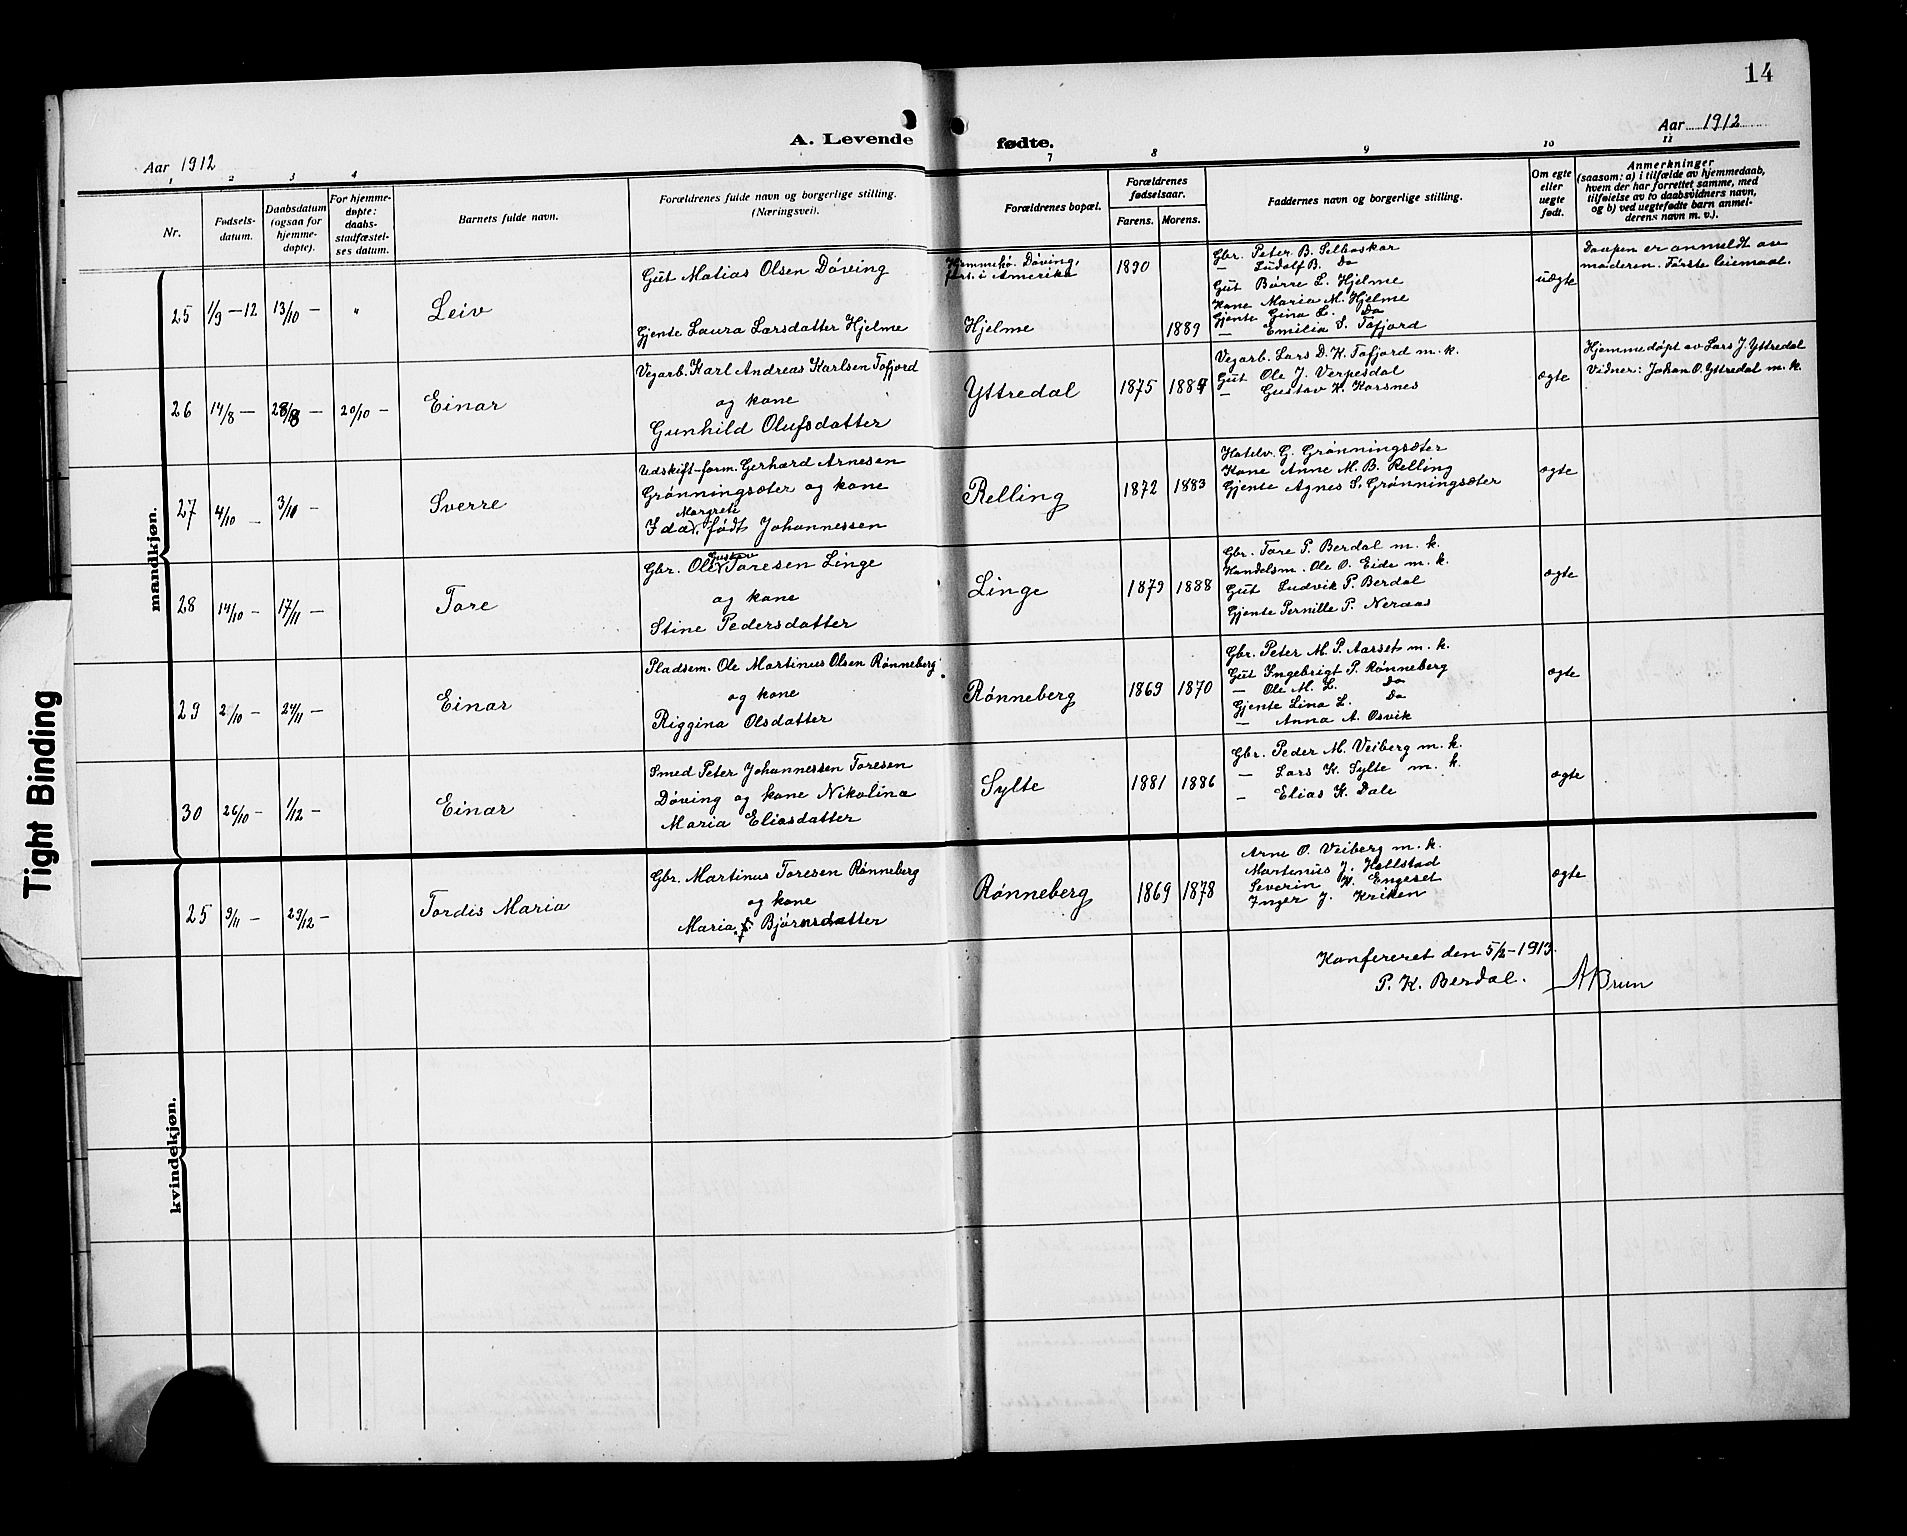 14
Aar 1912
A. Levende fødte.
Aar 1912
1 2 3 4 7 8 9 10 11
Nr.
Fødsels-
datum.
Daabsdatum
(ogsaa for
hjemme-
døpte).
For hjemme-
døpte:
daabs-
stadfæstel-
ses datum.
Barnets fulde navn.
Forældrenes fulde navn og borgerlige stilling.
(Næringsvei).
Forældrenes bopæl.
Forældrenes
fødselsaar.
Farens. Morens.
Faddernes navn og borgerlige stilling.
Om egte
eller
uegte
født.
Anmerkninger
(saasom: a) i tilfælde av hjemmedaab,
hvem der har forrettet samme, med
tilføielse av to daabsvidners navn,
og b) ved uegtefødte barn anmel-
derens navn m. v.).
mandkjøn.
25 1/9 – 12 13/10 – " Leiv
Gut Matias Olsen Döving
Gjente Laura Larsdatter Hjelme
Hjemmehö. Döving,
fort. i Amerika
Hjelme
1890
1889
Gbr. Peter B. Selboskar
– Ludolf B. Do
Gut Börre L. Hjelme
Kone Maria M. Hjelme
Gjente Gina L. Do
– Emilia S. Tafjord
uegte
Daapen er anmeldt av
moderen. Förste leiemaal.
26 14/8 – 28/8 – 20/10 – Einar
Vegarb. Karl Andreas Karlsen Tafjord
og kone
Gunhild Olufsdatter
Yttredal
1875 1887
Vegarb. Lars D. K. Tafjord m. k.
Gut Ole J. Verpesdal
– Gustav K. Korsnes
egte
Hjemmedöpt av Lars J. Yttredal
Vidner: Johan O. Yttredal m. k.
27 4/10 – 3/10 – Sverre
Udskift-form. Gerhard Arnesen
Grönningsæter og kone
Margrete
Ida, född Johannessen
Relling
1872 1883
Hotelv. G. Grönningsæter
Kone Anne M. B. Relling
Gjente Agnes S. Grönningsæter
egte
28 14/10 – 17/11 – Tore
Gustav
Gbr. Ole Toresen Linge
og kone
Stine Pedersdatter
Linge
1879 1888
Gbr. Tore P. Berdal m. k.
Handelsm. Ole O. Eide m. k.
Gut Ludvik P. Berdal
Gjente Pernille P. Neraas
egte
29 2/10 – 24/11 – Einar
Pladsem. Ole Martinus Olsen Rönneberg
og kone
Riggina Olsdatter
Rönneberg
1869 1870
Gbr. Peter M. P. Aarset m. k.
Gut Ingebrigt P. Rönneberg
– Ole M. L. Do
Gjente Lina L. Do
– Anna A. Osvik
egte
30 26/10 – 1/12 – Einar
Smed Peter Johannessen Toresen
Döving og kone Nikolina
Maria Eliasdatter
Sylte
1881 1886
Gbr. Peder M. Veiberg m. k.
– Lars K. Sylte m. k
– Elias K. Dale
egte
kvindekjøn.
25 9/11 – 29/12 – Tordis Maria
Gbr. Martinus Toresen Rönneberg
og kone
Maria Björnsdatter
Rönneberg
1869 1878
Arne O. Veiberg m. k.
Martinus J. Hallstad
Severin K. Engeset
Inger J. Kriken
egte
Konfereret den 5/2 – 1913.
P. K. Berdal. A Brun
Tight Binding